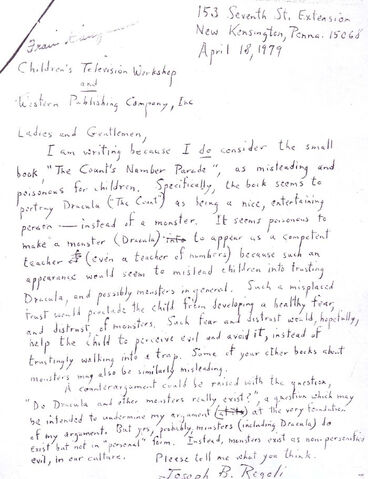 153 Seventh St. Extension
New Kensington, Penna. 15068
April 18, 1979
Children's Television Workshop
and
Western Publishing Company, Inc
Ladies and Gentlemen,
I am writing because I do consider the small
book "The Count's Number Parade", as misleading and
poisonous for children. Specifically, the book seems to
portray Dracula ("The Count") as being a nice, entertaining
person — instead of a monster. It seems poisonous to
make a monster (Dracula) to appear as a competent
teacher (even a teacher of numbers) because such an
appearance would seem to mislead children into trusting
Dracula, and possibly monsters in general. Such a misplaced
trust would preclude the child from developing a healthy fear,
and distrust, of monsters. Such fear and distrust would, hopefully,
help the child to perceive evil and avoid it, instead of
trustingly walking into a trap. Some of your other books about
monsters may also be similarly misleading.
A counterargument could be raised with the question,
"Do Dracula and other monsters really exist?", a question which may
be intended to undermine my argument at the very foundation
of my argument. But yes, probably, monsters (including Dracula) do
exist but not in "personal" form. Instead, monsters exist as non-personified
evil, in our culture. Please tell me what you think.
Joseph B. Regoli